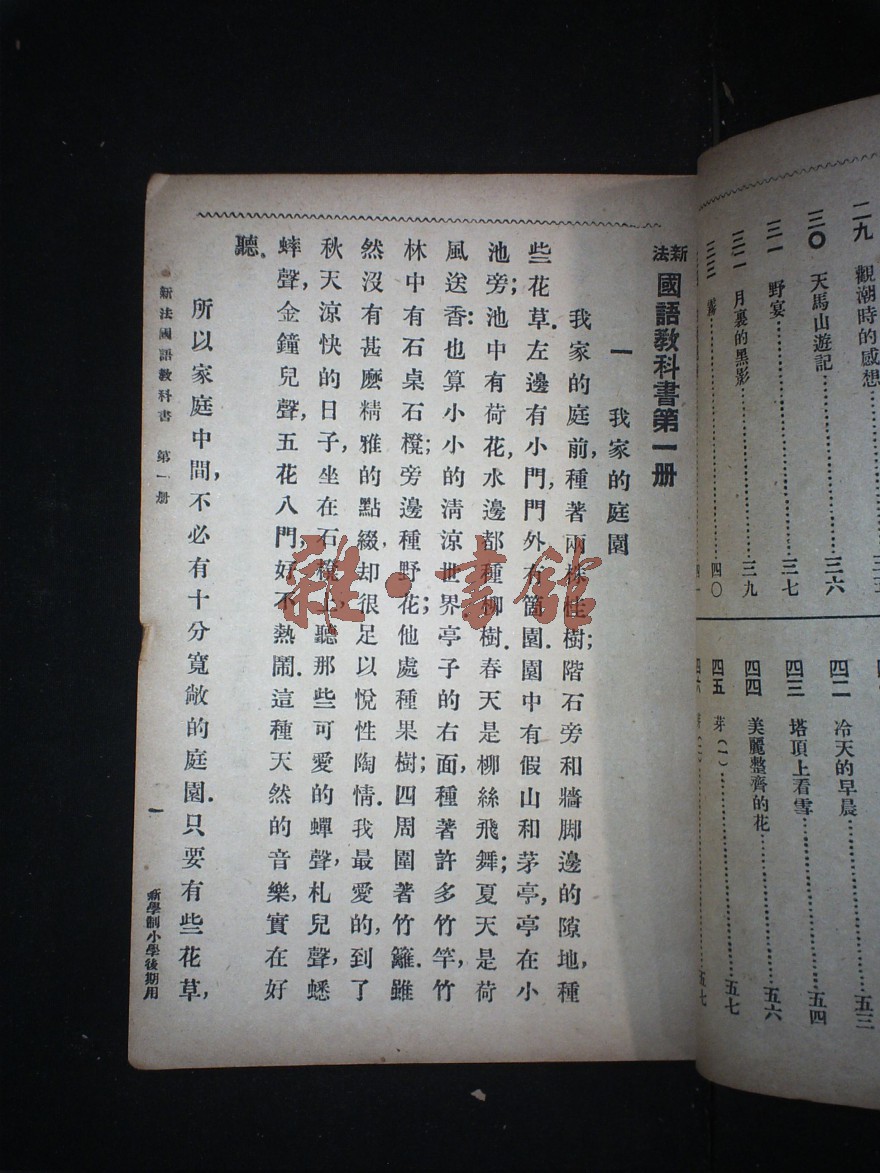 二九　觀潮時的感想
三〇　天馬山遊記…………三六
三一　野宴…………三七
三二　月裏的黑影…………三九
四〇
四二　冷天的早晨…………五三
四三　塔頂上看雪…………五四
四四　美麗整齊的花…………五六
四五　芽(一)…………五七
五七
新法國語教科書第一册
一　我家的庭園
我家的庭前，種著兩株桂樹；階石旁和牆脚邊的隙地，種
些花草．左邊有小門，門外有箇園．園中有假山和茅亭，亭在小
池旁；池中有荷花，水邊都種柳樹．春天是柳絲飛舞；夏天是荷
風送香：也算小小的清涼世界．亭子的右面，種著許多竹竿，竹
林中有石桌石櫈；旁邊種野花；他處種果樹；四周圍著竹籬．雖
然沒有甚麽精雅的點綴，却很足以悅性陶情．我最愛的，到了
秋天涼快的日子，坐在石櫈上，聽那些可愛的蟬聲，札兒聲，蟋
蟀聲，金鐘兒聲，五花八門，好不熱鬧．這種天然的音樂，實在好
聽．
所以家庭中間，不必有十分寬敞的庭園．只要有些花草，
新法國語教科書　第一册
一
新學制小學後期用
雜·書館